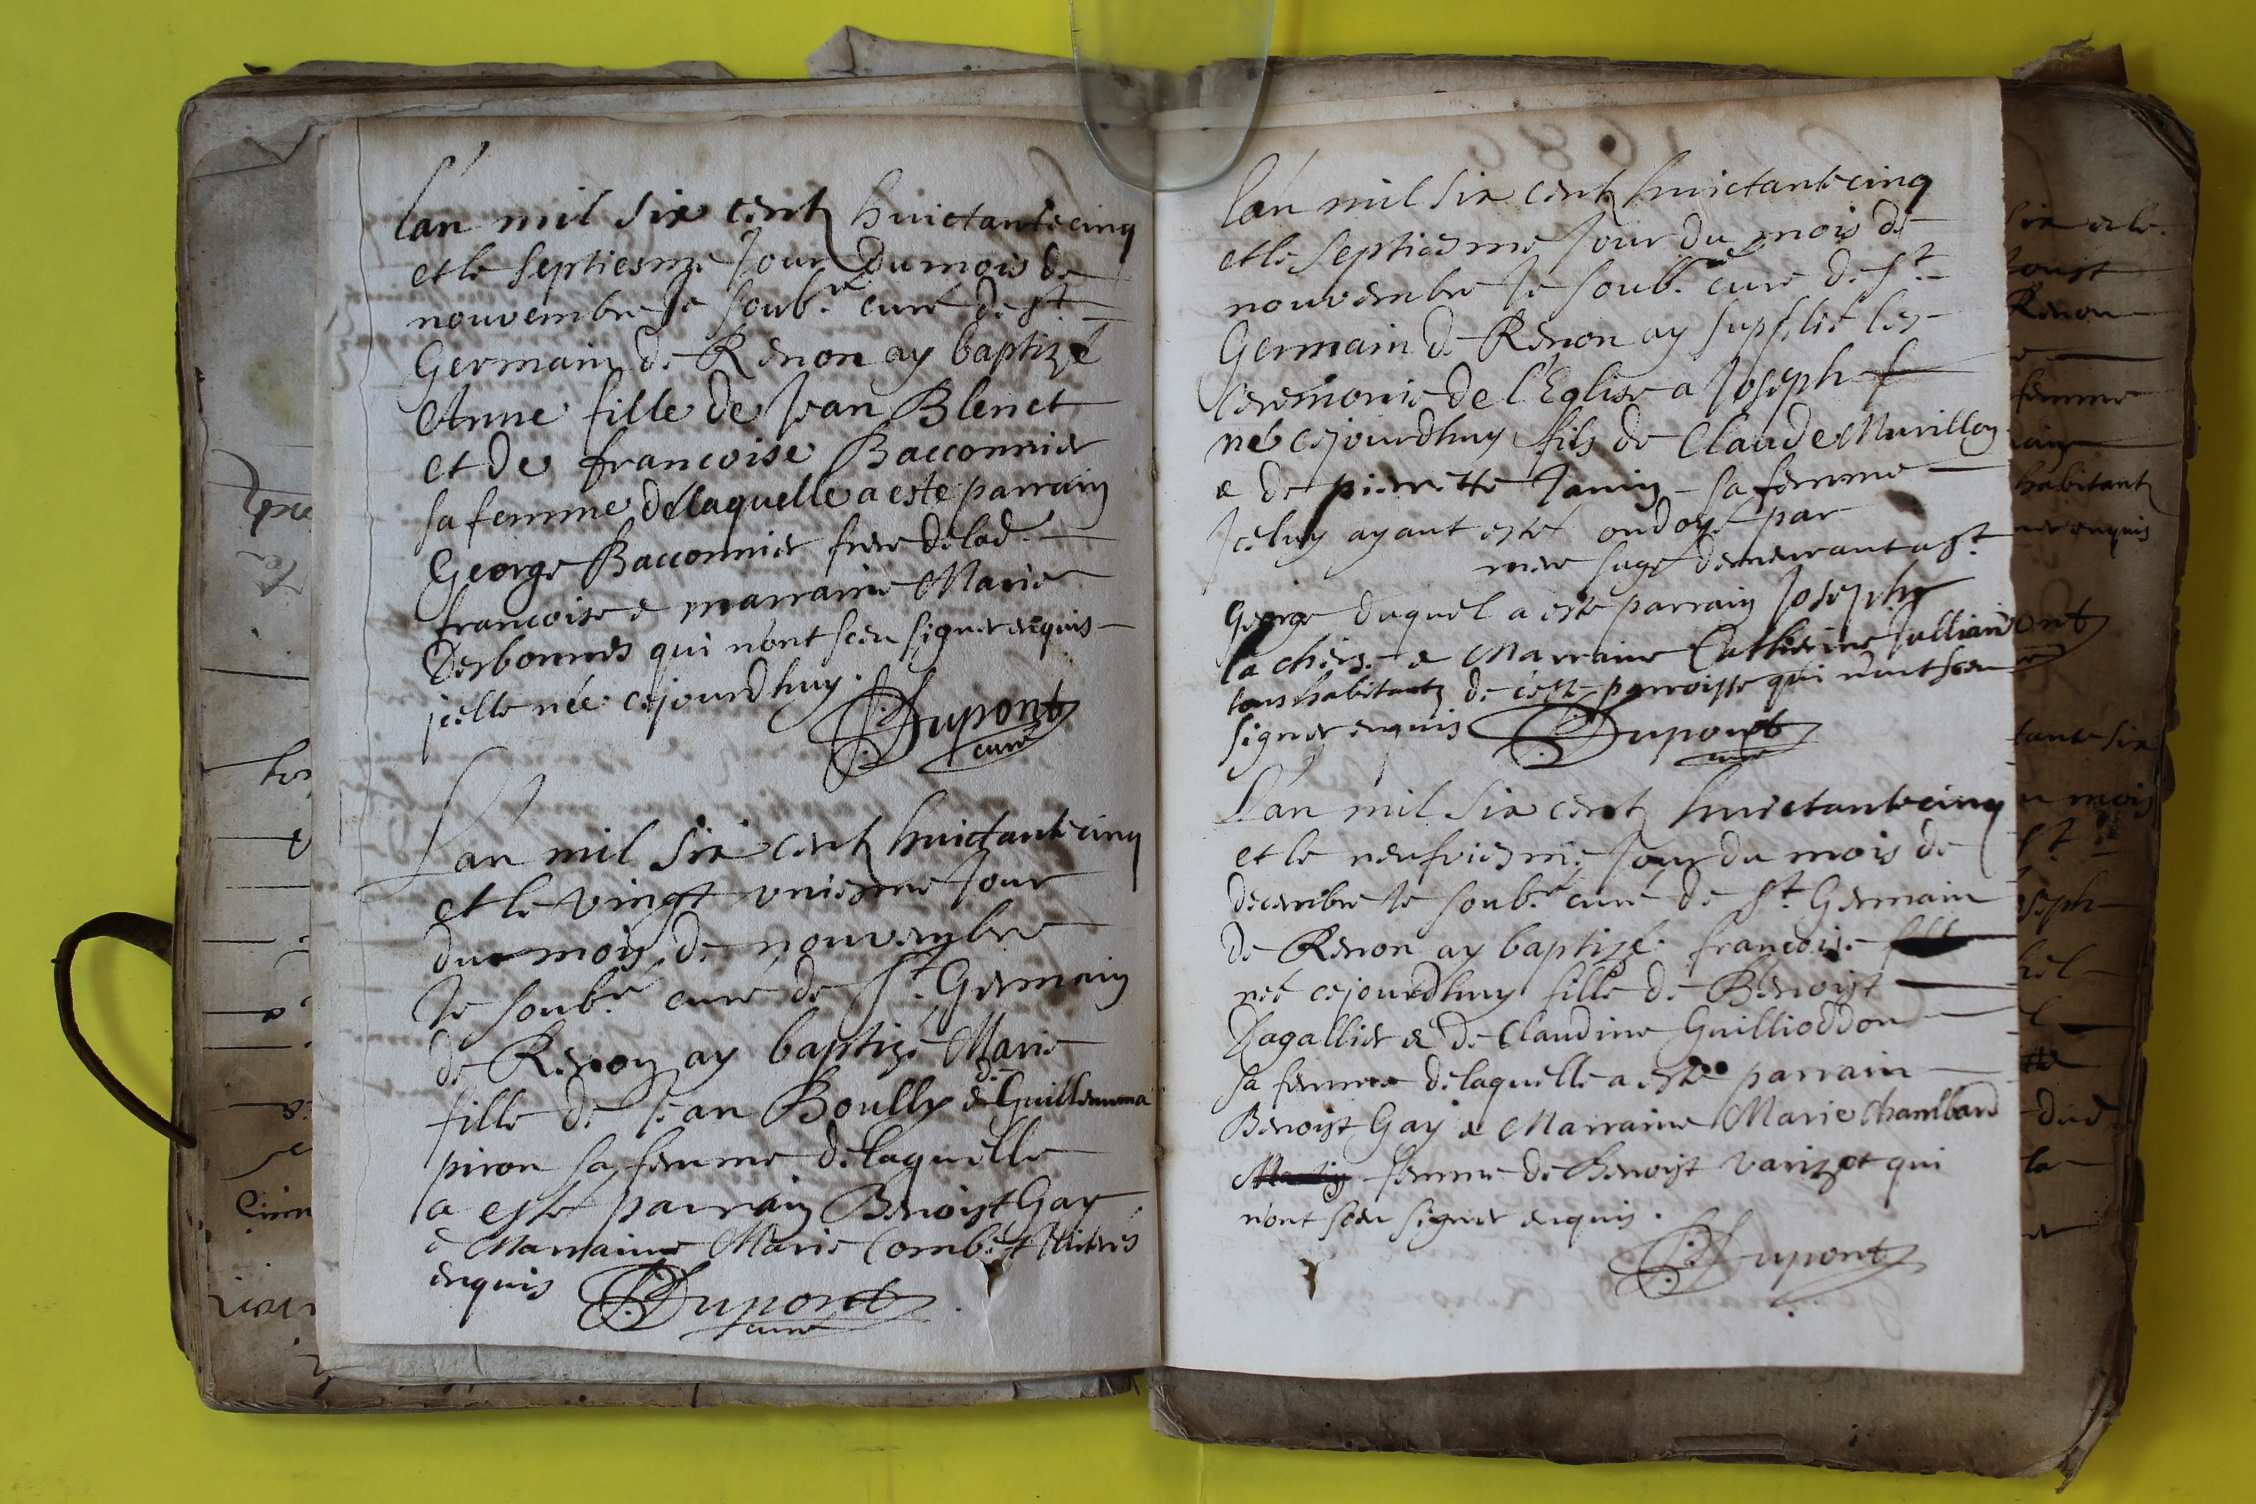 Lan mil six centz huictante cinq
et le septiesme Jour du mois de
nouvembre Je soub.né curé de St
Germain de Renon ay baptizé
Anne fille de Jean Blenet
et de francoise Bacconnier
sa femme delaquelle a esté parrain
George Bacconnier frere de lad.
francoise & marraine Marie
Desbonnes qui n'ont sceu signer enquis
jcelle née cejourdhuy.
Dupont
curé
Lan mil six centz huictante cinq
et le vingt uniesme Jour
du mois de nouvembre
Je soub.né curé de St. Germain
de Renon ay baptizé Marie
fille de Jean Boully & de Guillemma
piron sa femme delaquelle
a esté parrain Benoist Gay
& Marraine Marie Combet
enquis
Dupont
curé
Lan mil six centz huictante cinq
et le septiesme Jour du mois de
nouvembre Je soub.né curé de St
Germain de Renon ay supplié les
ceremonie de l'Eglise a Joseph
né cejourdhuy fils de Claude Murillon
& de pierrette Janin sa femme
Jceluy ayant esté ondoyé par
mere sage demeurant a St
George duquel a esté parrain Joseph
la chise & Marraine Catherine Jullian
tous habitantz de ceste parroisse qui n'ont sceu
signer enquis Dupont
curé
Lan mil six centz huictante cinq
et le neufviesme Jour du mois de
decembre Je soub.né curé de St. Germain
de Renon ay baptizé francoise
neé cejourdhuy fille de Benoist
Dagallier & de Claudine Guillioddon
sa femme delaquelle a esté parrain
Benoist Gay & Marraine Marie Chambard
femme de Benoist varizot qui
n'ont sceu signer enquis.
Dupont